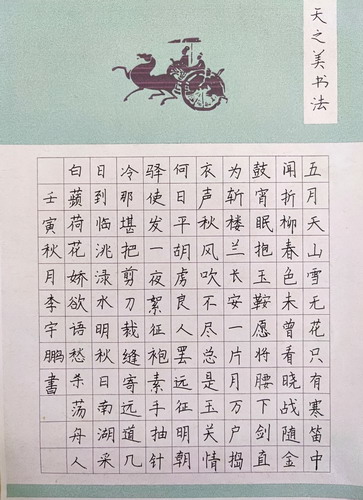 天之美书法
五月天山雪无花只有寒笛中
闻折柳春色未曾看晓战随金
鼓宵眠抱玉鞍愿将腰下剑直
为斩楼兰长安一片月万户捣
衣声秋风吹不尽总是玉关情
何日平胡虏良人罢远征明朝
驿使发一夜絮征袍素手抽针
冷那堪把剪刀裁缝寄远道几
日到临洮渌水明秋日南湖采
白蘋荷花娇欲语愁杀荡舟人
壬寅秋月李宇鹏书